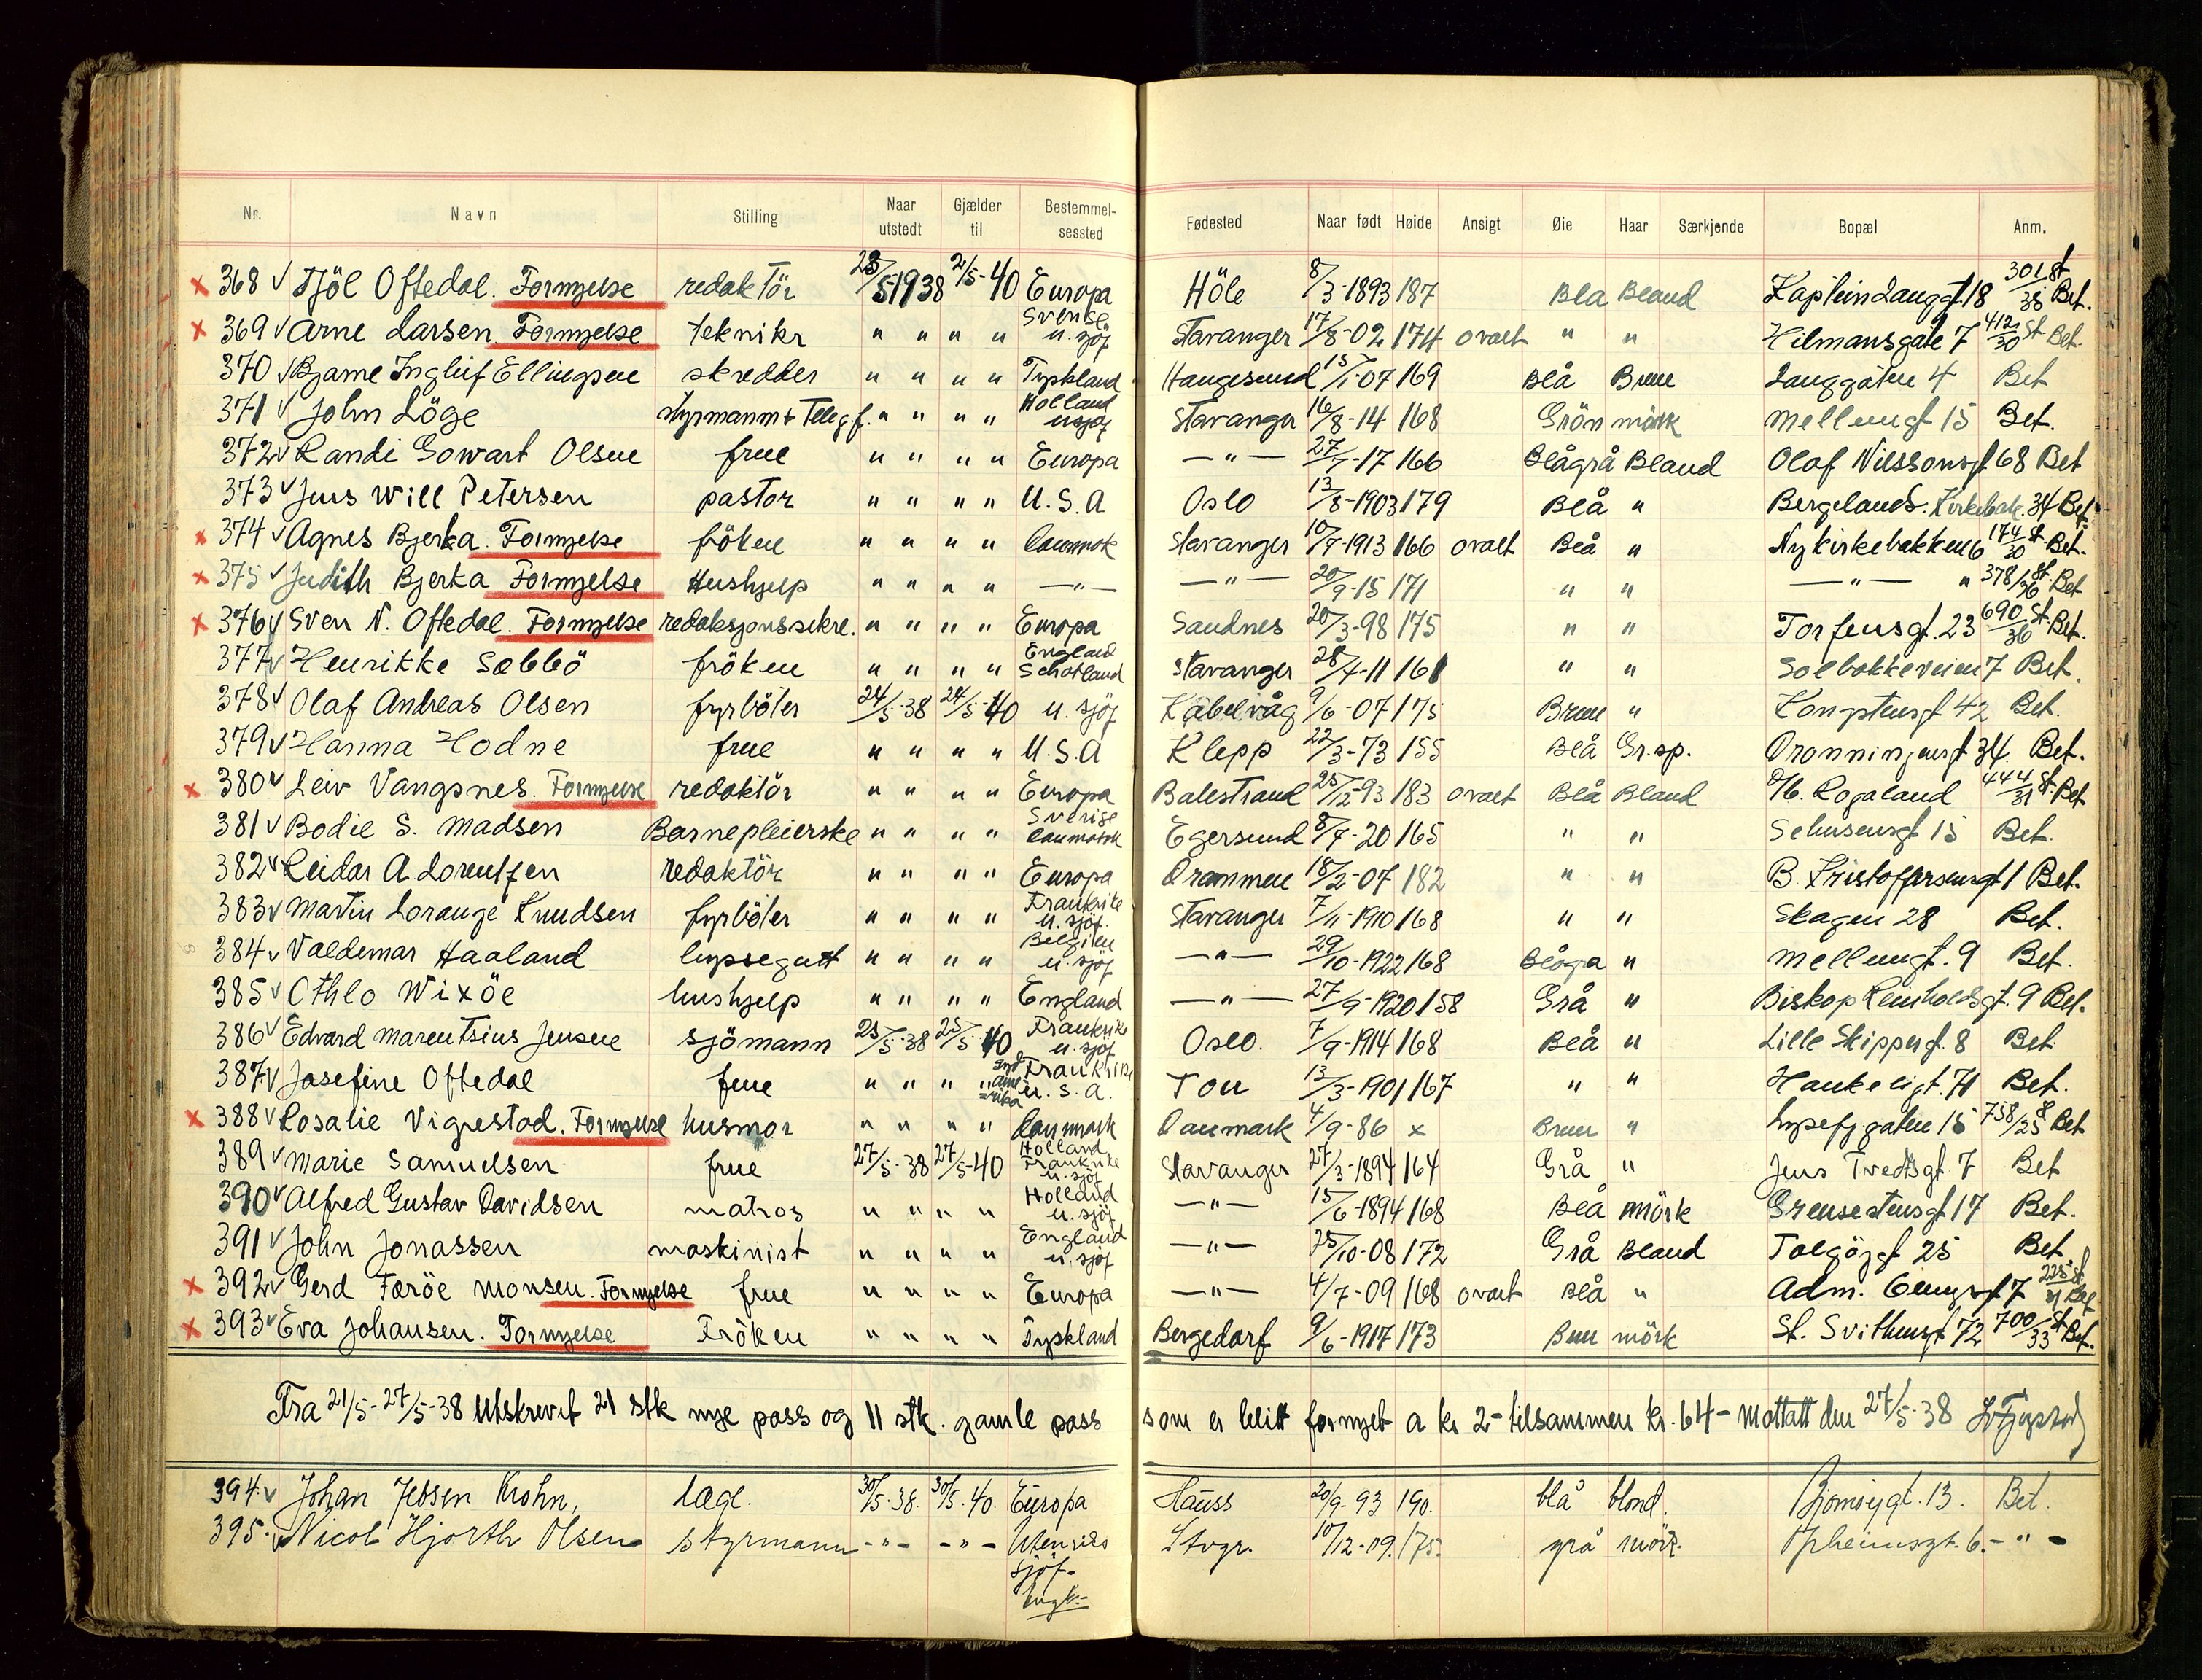 Nr. Navn Stilling Naar utstedt Gjælder til Bestemmelsessted Fødested Naar født Høide Ansigt Øie Haar Særkjende Bopæl Anm.
x 368 v Tjöl Oftedal. Fornyelse redaktör 23/5 1938 2/5-40 Europa Höle 8/3-1893 187 Blå Bland Kaptein Langgt 18 301/38 St Bet.
x 369 v Arne Larsen Fornyelse teknikr " " " " Sverise u. sjöf Stavanger 17/8-02 174 ovalt " " Hilmansgate 7 412/30 St Bet.
370 v Bjarne Ingluf Ellingsen skredder " " " " Tyskland Haugesund 15/1-07 169 Blå Brun Langgaten 4 Bet
371 v John Löge styrmann + Teleg.f. " " " " Holland usjöf Stavanger 16/8-14 168 Grön mörk Mellemgt 15 Bet.
372 v Randi Gowart Olsen frue " " " " Europa — " — 27/7-17 166 Blågrå Bland Olaf Nilssonsgt 68 Bet
373 v Jens Will Petersen pastor " " " " U.S.A Oslo 13/8-1903 179 Blå " Bergelands. Kirkebak. 34 Bet.
x 374 v Agnes Bjerka. Fornyelse fröken " " " " Danmark Stavanger 10/7-1913 166 ovalt Blå " Nykirkebakken 6 174/30 St Bet.
x 375 v Judith Bjerka Fornyelse Hushjelp " " " " — " — — " — 20/9-15 171 " " — " — " 378/36 St. Bet
x 376 v Sven N. Oftedal. Fornyelse redaksjonssekre. " " " " Europa Sandnes 20/3-98 175 " " Torfeusgt. 23 690/36 St Bet.
377 v Henrikke Sæbbö fröken " " " " England Schotland Stavanger 28/4-11 161 " " Solbakkeveien 7 Bet.
378 v Olaf Andreas Olsen fyrböter 24/5-38 24/5-40 u. sjöf Kabelvåg 9/6-07 175 Brun " Kongstensgt 42 Bet.
379 v Hanna Hodne frue " " " " U.S.A Klepp 22/3-73 155 Blå Gr.sp. Dronningensgt 34. Bet.
x 380 v Leiv Vangsnes. Fornyelse redaktör " " " " Europa Balestrand 25/12-93 183 ovalt Blå Bland H. Rogaland 444/31 St Bet
381 v Bodil S. Madsen Barnepleierske " " " " Sverise Danmark Egersund 8/7-20 165 " " Sehusensgt 15 Bet.
382 v Reidar A Lorentzen redaktör " " " " Europa Drammen 18/2-07 182 " " B. Kristoffersensgt 1 Bet.
383 v Martin Lorange Knudsen fyrböter " " " " Frankrike u. sjöf. Stavanger 7/11-1910 168 " " Skagen 28 Bet.
384 v Valdemar Haaland byssegutt " " " " Belgien u. sjöf — " — 29/10-1922 168 Blåga " Mellemgt. 9 Bet.
385 v Othlo Wixöe hushjelp " " " " England — " — 27/9-1920 158 Grå " Biskop Reinholdsgt. 9 Bet.
386 v Edvard Marentsius Jensen sjömann 25/5-38 25/5-40 Frankrike u. sjöf Oslo. 7/9-1914 168 Blå " Lille Skippergt. 8 Bet
387 v Josefine Oftedal frue " " " " Syd amerika Frankrike U.S.A. Tou 13/3-1901 167 " " Haukeligt. 71 Bet.
x 388 v Rosalie Vigrestad. Fornyelse husmor " " " " Danmark Danmark 4/9-86 x Brun " Lysefjgaten 15 758/25 Bet
389 v Marie Samuelsen frue 27/5-38 27/5-40 Holland Frankrike u. sjöf Stavanger 27/3-1894 164 Grå " Jens Tvedtsgt. 7 Bet
390 v Alfred Gustav Davidsen matros " " " " Holland u. sjöf — " — 15/6-1894 168 Blå mörk Grensestensgt 17 Bet.
391 v John Jonassen maskinist " " " " England u. sjöf — " — 25/10-08 172 Grå Bland Tolgözgt 25 Bet
x 392 v Gerd Færöe Monsen. Fornyelse frue " " " " Europa — " — 4/7-09 168 ovalt Blå " Adm. 7 225/31 St Bet
x 393 v Eva Johansen. Fornyelse Fröken " " " " Tyskland Bergedorf 9/6-1917 173 Brun mörk St. Svithunsgt 72 700/33 St Bet.
Fra 21/5-27/5-38 Utskrevet 21 stk nye pass og 11 stk. gamle pass som er blitt fornyet a kr 2- tilsammen kr. 64- Mottatt den 27/5-38
394. v Johan Jessen Krohn, læge. 30/5-38. 30/5-40. Europa Hauss 20/9-93 190. blå blond. Bjornöygt. 13. Bet.
395. v Nicol Hjorth Olsen styrmann - " - - " - Utenriks sjöf. Engl. Stvgr. 10/12-09. 175. grå mörk. Opheimsgt. 6. - " -